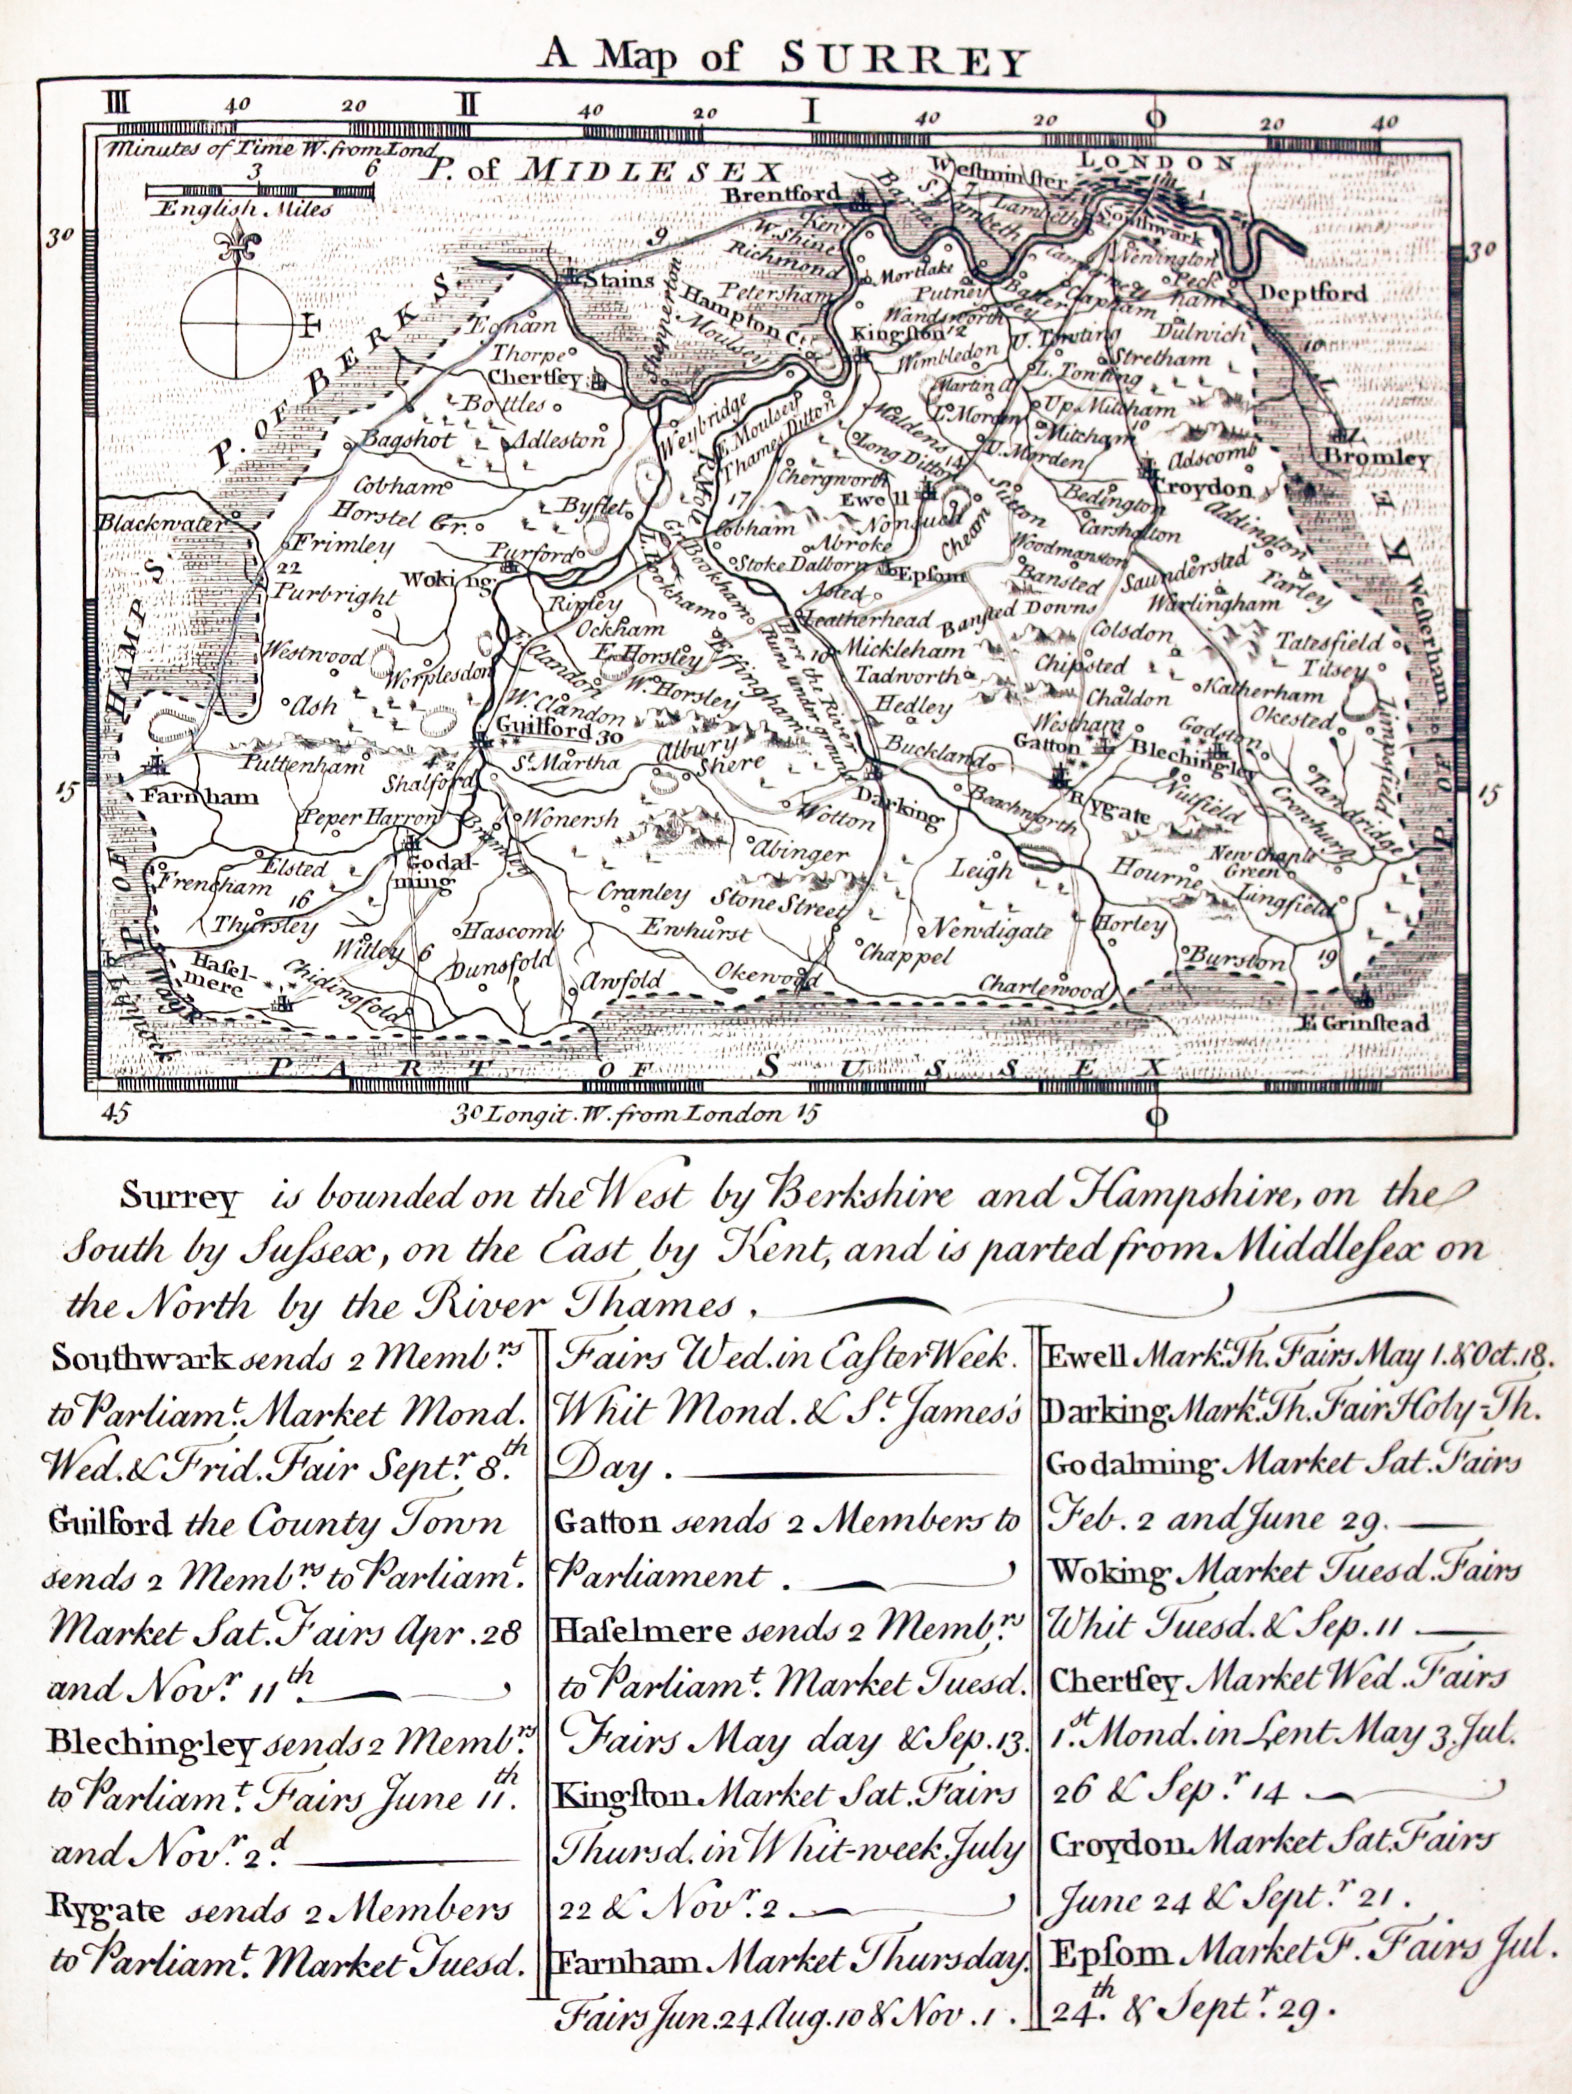 A Map of SURREY
III 40 20 II 40 20 I 40 20 0 20 40
Minutes of Time W. from Lond.
3 6
English Miles
P. of MIDLESEX
LONDON
Westminster
Brentford
Barnes
Lambeth
Southwark
Kew
W. Shine
Richmond
Newington
30
30
9
7
Stains
Shepperton
Petersham
Mortlake
Putney
Camerwell
Peckham
Deptford
Hampton Ct.
Moulsey
Wandsworth
Battersey
Clapham
P. OF BERKS
Egham
Kingston 12
U. Towting
Dulwich
10
Thorpe
Wimbledon
Stretham
Chertsey
L. Towting
Bottles
Weybridge
E. Moulsey
Martin A
Up. Mitcham
Bagshot
Adleston
Thames Ditton
L. Morden
Mitcham
10
R. Mole
Maldens
U. Morden
Adscomb
Bromley
Long Ditton
14
Cobham
Chergworth
Croydon
Horstel Gr.
Byflet
17
Ewell
Sutton
Bedington
Blackwater
Cobham
Nonsuch
Cheam
Carshalton
Addington
Frimley
Purford
Abroke
Woodmanston
22
Woking
Stoke Dalborn
Epsom
Bansted
Saundersted
Farley
Purbright
Gr. Bookham
L. Bookham
Asted
Warlingham
Ripley
Leatherhead
Bansted Downs
Westerham
Ockham
Colsdon
Tatesfield
Westwood
E. Horsley
Effingham
Mickleham
Chipsted
Titsey
Worplesdon
E. Clandon
Here the River Runs underground
Tadworth
Katherham
Ash
W. Clandon
W. Horsley
Hedley
Chaldon
Okested
HAMPS
Guilford 30
Westham
Godston
Limpsfield
Puttenham
St. Martha
Albury
Buckland
Gatton
Blechingley
Shalford
Shere
Darking
Rygate
15
15
Farnham
Beachworth
Nutfield
Tamdridge
Peper Harron
Wonersh
Wotton
Crowhurst
Bramley
Godalming
Abinger
New Chaple Green
Elsted
Leigh
Hourne
Frencham
16
Cranley
Stone Street
Lingfield
Thursley
Ewhurst
Newdigate
Horley
Willey
6
Hascomb
Chappel
Burston
19
Haselmere
Chidingfold
Dunsfold
Awfold
Okewood
Charlewood
E. Grinstead
PART OF SUSSEX
45
30 Longit. W. from London 15
0
Surrey is bounded on the West by Berkshire and Hampshire, on the
South by Sussex, on the East by Kent, and is parted from Middlesex on
the North by the River Thames.
Southwark sends 2 Membrs.
to Parliamt. Market Mond.
Wed. & Frid. Fair Septr. 8th.
Guilford the County Town
sends 2 Membrs. to Parliamt.
Market Sat. Fairs Apr. 28
and Novr. 11th.
Blechingley sends 2 Membrs.
to Parliamt. Fairs June 11th.
and Novr. 2d.
Rygate sends 2 Members
to Parliamt. Market Tuesd.
Fairs Wed. in Easter Week.
Whit Mond. & St. James's
Day.
Gatton sends 2 Members to
Parliament.
Haselmere sends 2 Membrs.
to Parliamt. Market Tuesd.
Fairs May day & Sep. 13.
Kingston Market Sat. Fairs
Thursd. in Whit-week, July
22 & Novr. 2.
Farnham Market Thursday.
Fairs Jun. 24, Aug. 10 & Nov. 1.
Ewell Markt. Th. Fairs May 1. & Oct. 18.
Darking Markt. Th. Fair Holy-Th.
Godalming Market Sat. Fairs
Feb. 2 and June 29.
Woking Market Tuesd. Fairs
Whit Tuesd. & Sep. 11
Chertsey Market Wed. Fairs
1st. Mond. in Lent May 3. Jul.
26 & Sepr. 14
Croydon Market Sat. Fairs
June 24 & Septr. 21.
Epsom Market F. Fairs Jul.
24th. & Septr. 29.